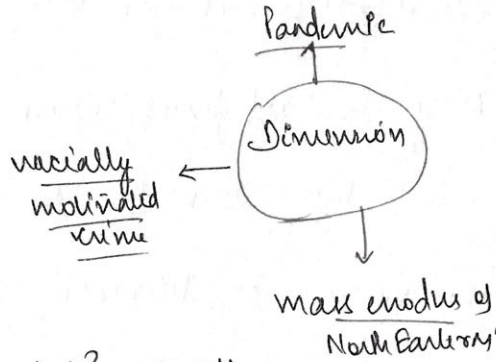 Pandemic
Dimension
racially
motivated
crime
mass exodus of
North Eastern